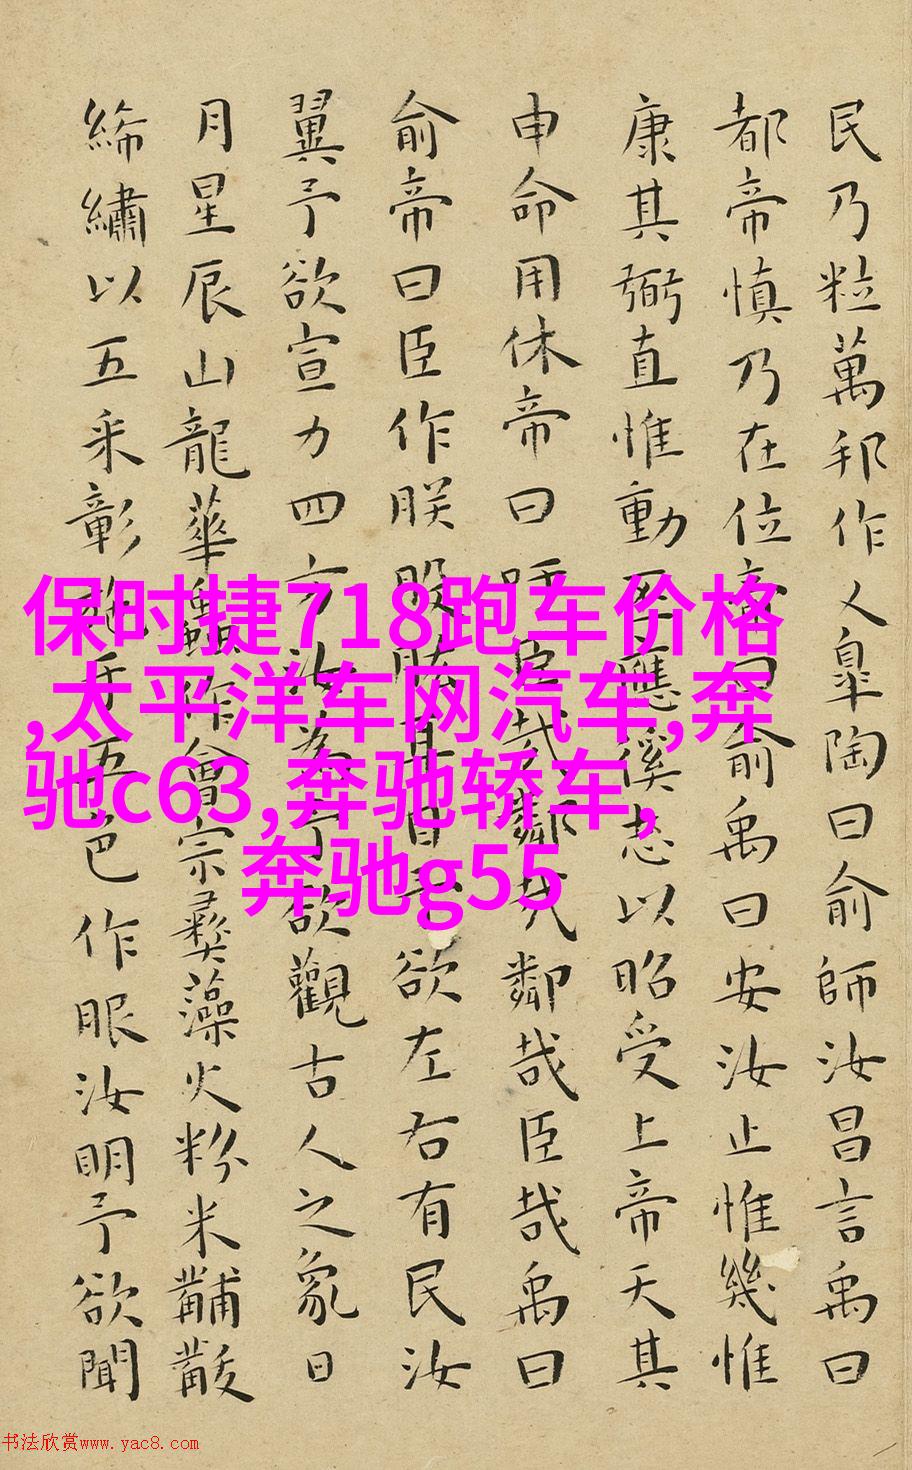 民乃粒萬邦作人皐陶曰俞師汝昌言禹曰
都帝慎乃在位帝曰俞禹曰安汝止惟幾惟
康其弼直惟動丕應徯志以昭受上帝天其
申命用休帝曰吁臣哉鄰哉鄰哉臣哉禹曰
俞帝曰臣作朕股肱耳目予欲左右有民汝
翼予欲宣力四方汝為予欲觀古人之象日
月星辰山龍華蟲作會宗彝藻火粉米黼黻
絺繡以五采彰施于五色作服汝明予欲聞
保时捷718跑车价格
,太平洋车网汽车,奔
驰c63,奔驰轿车,
奔驰g55
书法欣赏www.yac8.com